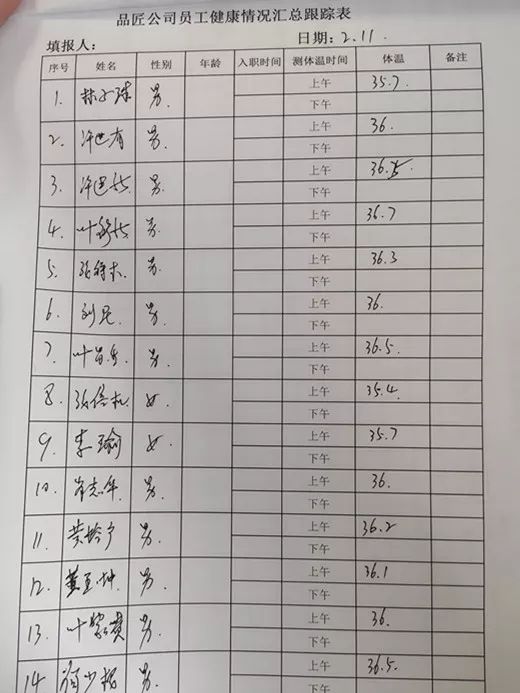 品匠公司员工健康情况汇总跟踪表
填报人： 日期：2.11.
序号 姓名 性别 年龄 入职时间 测体温时间 体温 备注
1. 男. 上午 35.7
下午
2. 男. 上午 36.
下午
3. 男. 上午 36.5
下午
4. 男. 上午 36.7
下午
5. 男. 上午 36.3
下午
6. 刘 男. 上午 36.
下午
7. 叶 男. 上午 36.5.
下午
8. 女. 上午 35.4.
下午
9. 李瑜 女. 上午 35.7
下午
10. 男. 上午 36.
下午
11. 黄 男. 上午 36.2
下午
12. 黄 坤 男. 上午 36.1
下午
13. 叶 男. 上午 36.
下午
14. 男. 上午 36.5.
下午